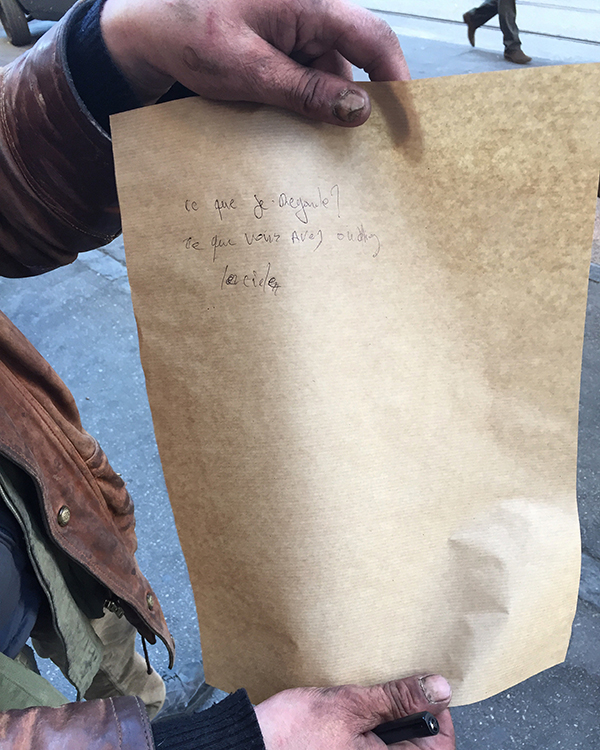 ce que je Regarde?
ce que vous avez oublié
le ciel